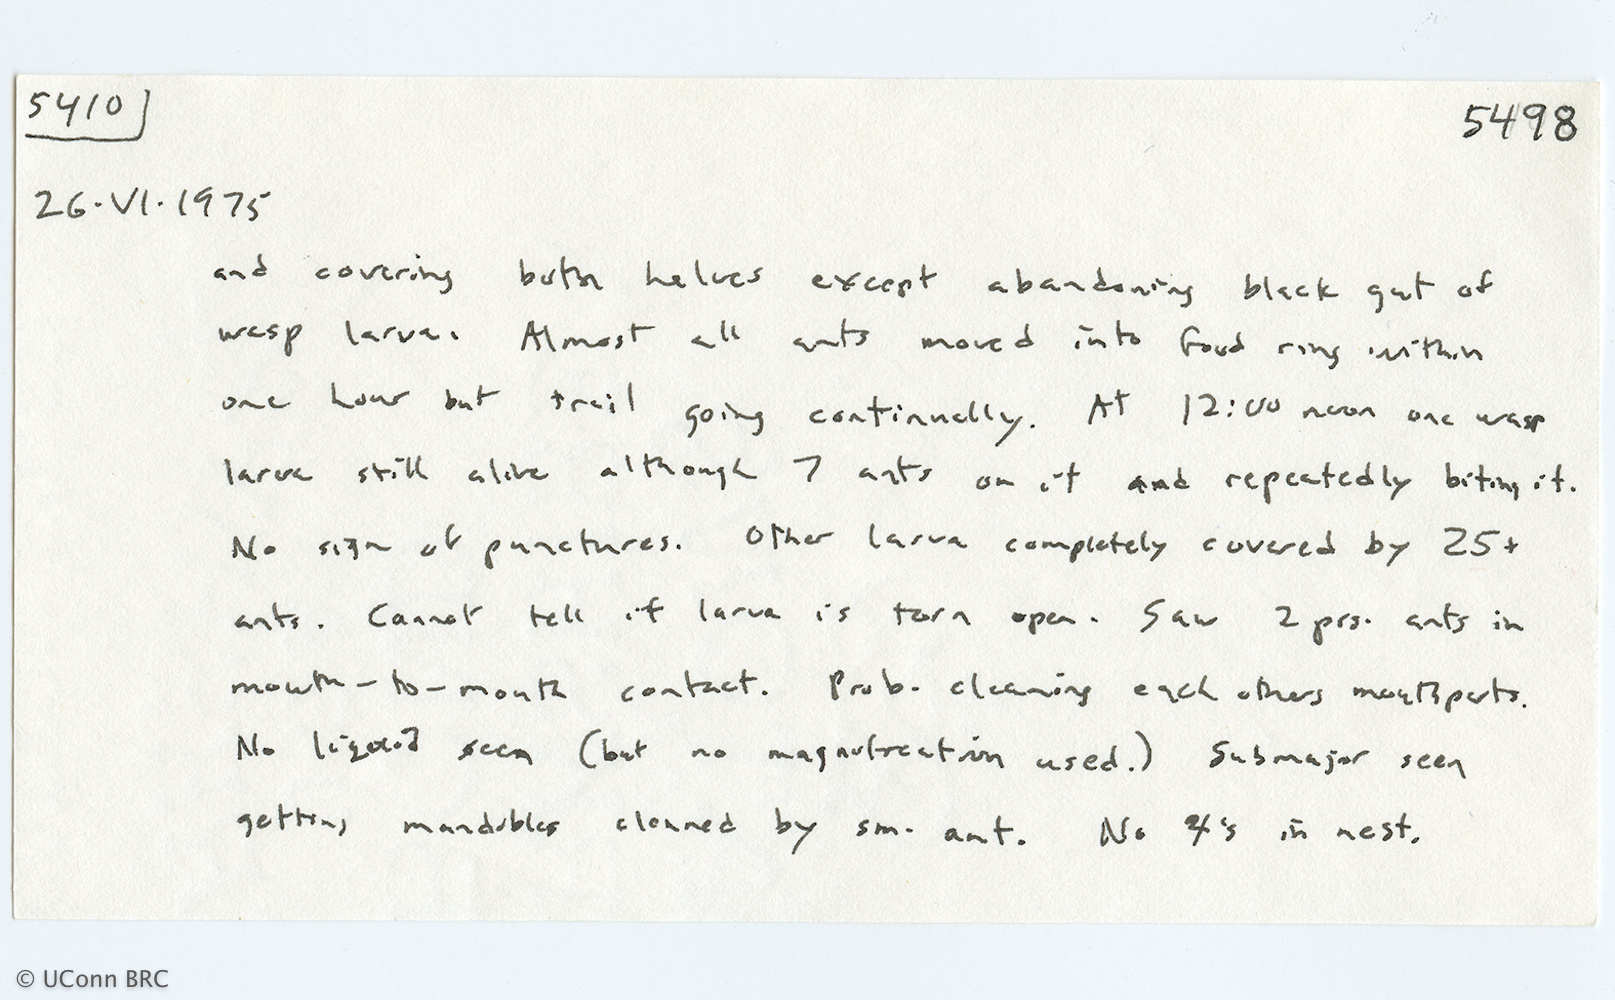 5410
5498
26·VI·1975
and covering both halves except abandoning black gut of
wasp larva. Almost all ants moved into food ring within
one hour but trail going continually. At 12:00 noon one wasp
larva still alive although 7 ants on it and repeatedly biting it.
No sign of punctures. Other larva completely covered by 25+
ants. Cannot tell if larva is torn open. Saw 2 prs. ants in
mouth-to-mouth contact. Prob. cleaning each others mouthparts.
No liquid seen (but no magnification used.) Submajor seen
getting mandibles cleaned by sm. ant. No in nest.
© UConn BRC